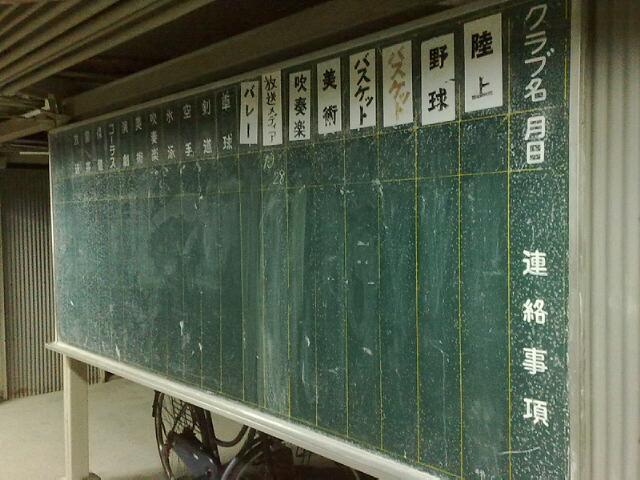 クラブ名
月日
連絡事項
陸上
野球
バスケット
バスケット
美術
吹奏楽
放送メディア
バレー
卓球
剣道
空手
水泳
吹奏楽
美術
演劇
コーラス